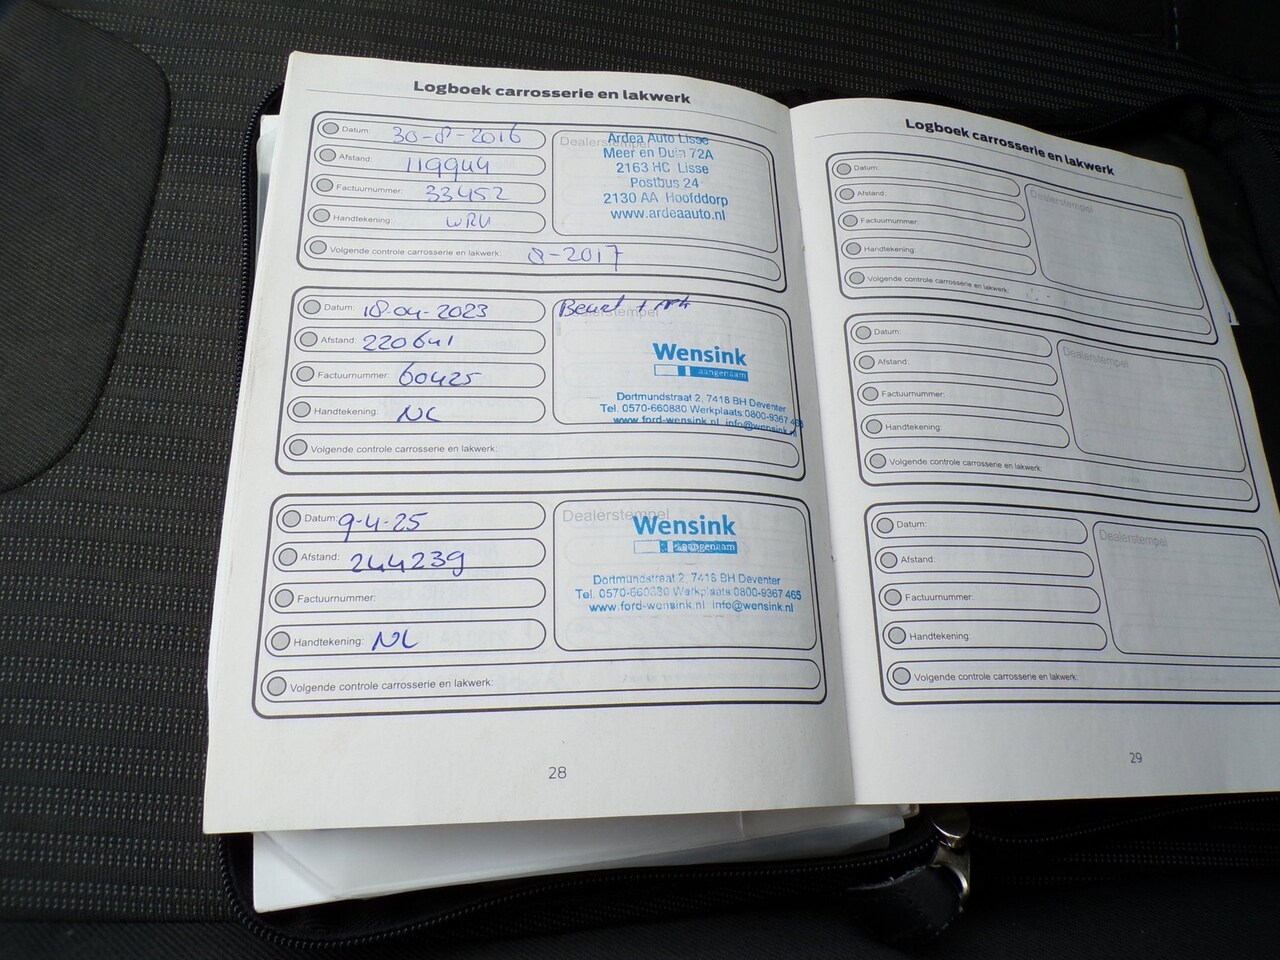 Logboek carrosserie en lakwerk
Datum: 30-8-2016
Afstand: 119944
Factuurnummer: 33452
Handtekening:
Volgende controle carrosserie en lakwerk: 8-2017
Dealerstempel
Ardea Auto Lisse
Meer en Duin 72A
2163 HC Lisse
Postbus 24
2130 AA Hoofddorp
www.ardeaauto.nl
Datum: 18-04-2023
Afstand: 220641
Factuurnummer: 60425
Handtekening: NL
Volgende controle carrosserie en lakwerk:
Beurt + APK
Dealerstempel
Wensink
aangenaam
Dortmundstraat 2, 7418 BH Deventer
Tel. 0570-660880 Werkplaats:0800-9367 465
www.ford-wensink.nl info@wensink.nl
Datum: 9-4-25
Afstand: 244239
Factuurnummer:
Handtekening: NL
Volgende controle carrosserie en lakwerk:
Dealerstempel
Wensink
aangenaam
Dortmundstraat 2, 7418 BH Deventer
Tel. 0570-660880 Werkplaats:0800-9367 465
www.ford-wensink.nl info@wensink.nl
28
Logboek carrosserie en lakwerk
Datum:
Afstand:
Factuurnummer:
Handtekening:
Volgende controle carrosserie en lakwerk:
Dealerstempel
Datum:
Afstand:
Factuurnummer:
Handtekening:
Volgende controle carrosserie en lakwerk:
Dealerstempel
Datum:
Afstand:
Factuurnummer:
Handtekening:
Volgende controle carrosserie en lakwerk:
Dealerstempel
29